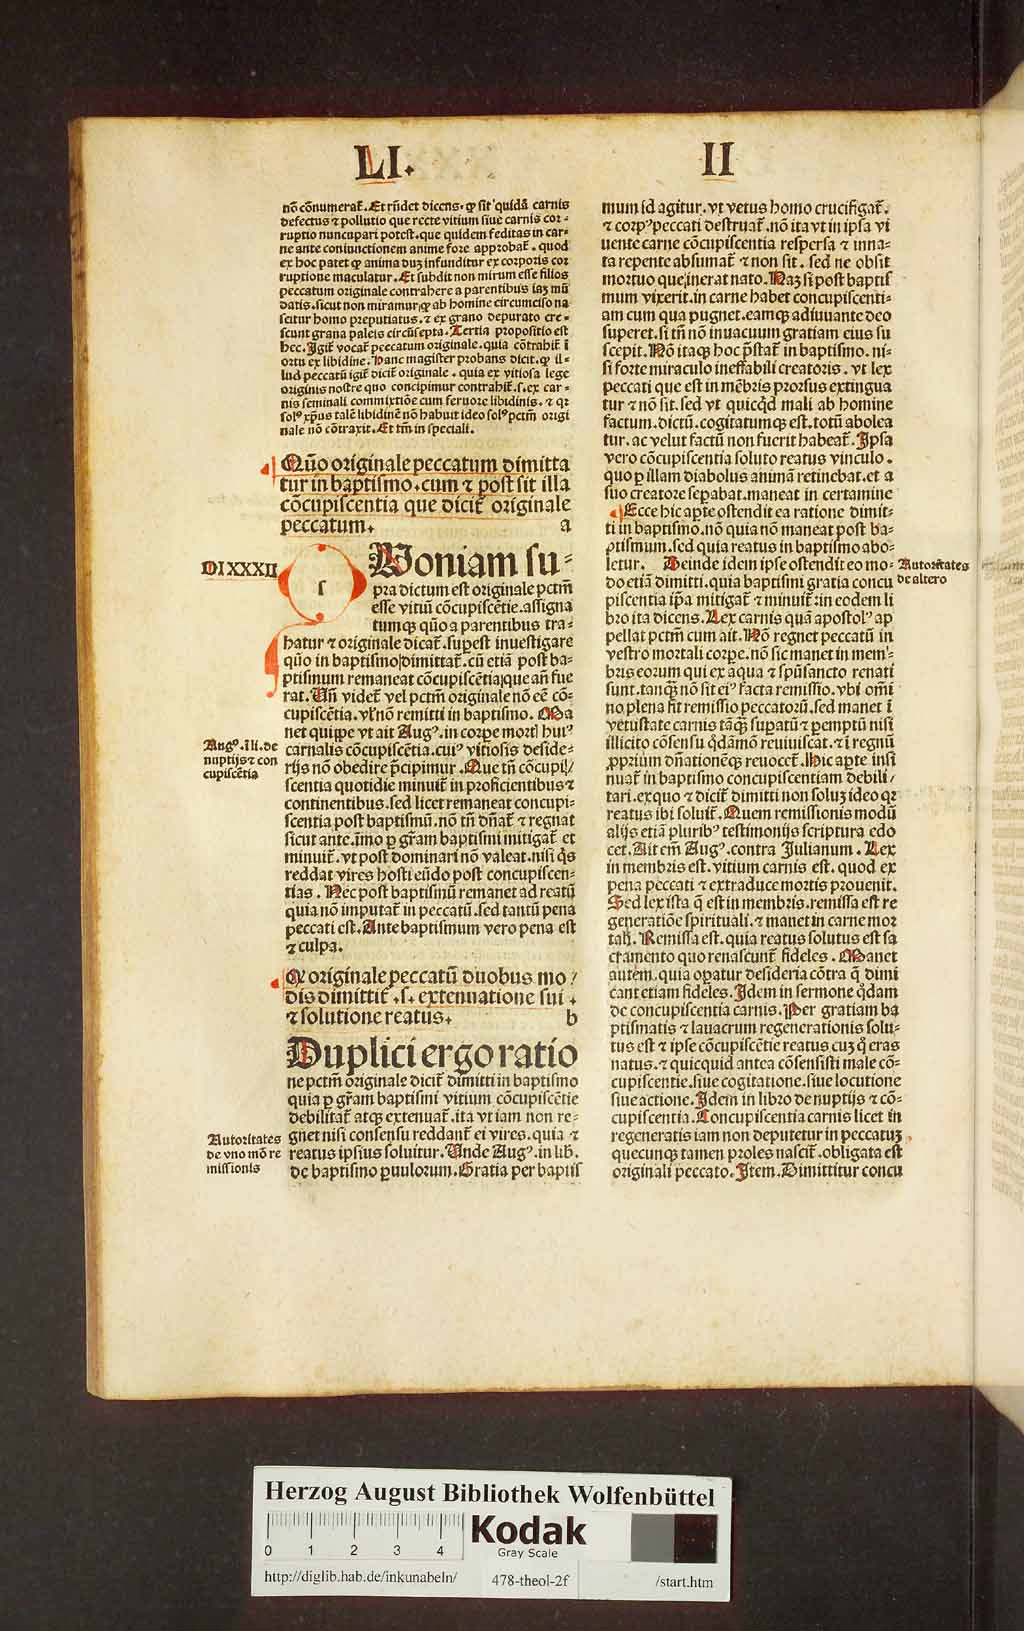 LI. II
nō cōnumerat᷑. Et rn̄det dicens. ꝙ sit quidā carnis
defectus ⁊ pollutio que recte vitium siue carnis cor-
ruptio nuncupari potest. que quidem feditas in car-
ne ante coniunctionem anime fore approbat᷑. quod
ex hoc patet ꝙ anima dum infunditur ex corporis cor
ruptione maculatur. Et subdit non mirum esse filios
peccatum originale contrahere a parentibus iaꝫ mū
datis. sicut non miramur ꝙ ab homine circumciso na
scitur homo preputiatus. ⁊ ex grano depurato cre-
scunt grana paleis circūsepta. Tertia propositio est
hec. Igit᷑ vocat᷑ peccatum originale. quia cōtrahit᷑ ī
ortu ex libidine. Hanc magister probans dicit. ꝙ il-
lud peccatū igit᷑ dicit᷑ originale. quia ex vitiosa lege
originis nostre quo concipimur contrahit᷑. s. ex car-
nis seminali commixtiōe cum feruore libidinis. ⁊ qꝛ
solꝰ xp̄us talē libidinē nō habuit ideo solꝰ pctm̄ origi
nale nō cōtraxit. Et tm̄ in speciali.
Quō originale peccatum dimitta
tur in baptismo. cum ⁊ post sit illa
cōcupiscentia que dicit᷑ originale
peccatum. a
DI XXXII
r
Quoniam su-
pra dictum est originale pctm̄
esse vitiū cōcupiscētie. assigna
tumqꝫ quō a parentibus tra-
hatur ⁊ originale dicat᷑. suꝑest inuestigare
quō in baptismo dimittat᷑. cū etiā post ba-
ptismum remaneat cōcupiscētia que an̄ fue
rat. Un̄ videt᷑ vel pctm̄ originale nō eē cō-
cupiscētia. vl᷑ nō remitti in baptismo. Ma
net quippe vt ait Augꝰ. in corpe mort huiꝰ
carnalis cōcupiscētia. cuiꝰ vitiosis deside-
rijs nō obedire p̄cipimur. Que tn̄ cōcupi/
scentia quotidie minuit᷑ in proficientibus ⁊
continentibus. sed licet remaneat concupi-
scentia post baptismū. nō tn̄ dn̄at᷑ ⁊ regnat
sicut ante. īmo ꝑ gr̄am baptismi mitigat᷑ et
minuit᷑. vt post dominari nō valeat. nisi q̇s
reddat vires hosti eūdo post concupiscen-
tias. Nec post baptismū remanet ad reatū
quia nō imputat᷑ in peccatū. sed tantū pena
peccati est. Ante baptismum vero pena est
⁊ culpa.
Augꝰ. ī li. de
nuptijs ⁊ con
cupiscētia
Qꝙ originale peccatū duobus mo/
dis dimittit᷑. s. extenuatione sui.
⁊ solutione reatus. b
Duplici ergo ratio
ne pctm̄ originale dicit᷑ dimitti in baptismo
quia ꝑ gr̄am baptismi vitium cōcupiscētie
debilitat᷑ atqꝫ extenuat᷑. ita vt iam non re-
gnet nisi consensu reddant᷑ ei vires. quia ⁊
reatus ipsius soluitur. Unde Augꝰ. in lib.
de baptismo ꝑuulorum. Gratia per baptis
Autoritates
de vno mō re
missionis
mum id agitur. vt vetus homo crucifigat᷑.
⁊ corpꝰ peccati destruat᷑. nō ita vt in ipsa vi
uente carne cōcupiscentia respersa ⁊ inna-
ta repente absumat᷑ ⁊ non sit. sed ne obsit
mortuo que inerat nato. Naꝫ si post baptis
mum vixerit. in carne habet concupiscenti-
am cum qua pugnet. eamqꝫ adiuuante deo
superet. si tn̄ nō in vacuum gratiam eius su
scepit. Nō itaqꝫ hoc p̄stat᷑ in baptismo. ni-
si forte miraculo ineffabili creatoris. vt lex
peccati que est in mēbris prorsus extingua
tur ⁊ nō sit. sed vt quicq̇d mali ab homine
factum. dictū. cogitatumqꝫ est. totū abolea
tur. ac velut factū non fuerit habeat᷑. Ipsa
vero cōcupiscentia soluto reatus vinculo.
quo ꝑ illam diabolus animā retinebat. et a
suo creatore seꝑabat. maneat in certamine
Ecce hic aꝑte ostendit ea ratione dimit-
ti in baptismo. nō quia nō maneat post ba-
ptismum. sed quia reatus in baptismo abo-
letur. Deinde idem ipse ostendit eo mo-
do etiā dimitti. quia baptismi gratia concu
piscentia ip̄a mitigat᷑ ⁊ minuit᷑: in eodem li
bro ita dicens. Lex carnis quā apostolꝰ ap
pellat pctm̄ cum ait. Nō regnet peccatū in
vestro mortali corpe. nō sic manet in mem-
bris eorum qui ex aqua ⁊ sp̄usancto renati
sunt. tanqꝫ nō sit eiꝰ facta remissio. vbi om̄i
no plena fit remissio peccatorū. sed manet ī
vetustate carnis tāqꝫ suꝑatū ⁊ ꝑemptū nisi
illicito cōsensu q̇dāmō reuiuiscat. ⁊ ī regnū
ꝓprium dn̄ationēqꝫ reuocet᷑. Hic aꝑte insi
nuat᷑ in baptismo concupiscentiam debili/
tari. ex quo ⁊ dicit᷑ dimitti non soluꝫ ideo qꝛ
reatus ibi soluit᷑. Quem remissionis modū
alijs etiā pluribꝰ testimonijs scriptura edo
cet. Ait em̄ Augꝰ. contra Julianum. Lex
in membris est. vitium carnis est. quod ex
pena peccati ⁊ ex traduce mortis prouenit.
Sed lex ista q̄ est in membris. remissa est re
generatiōe spirituali. ⁊ manet in carne mor
tali. Remissa est. quia reatus solutus est sa
cramento quo renascunt᷑ fideles. Manet
autem. quia oꝑatur desideria cōtra q̄ dimi
cant etiam fideles. Idem in sermone q̇dam
de concupiscentia carnis. Per gratiam ba
ptismatis ⁊ lauacrum regenerationis solu-
tus est ⁊ ipse cōcupiscētie reatus cuꝫ q̊ eras
natus. ⁊ quicquid antea cōsensisti male cō-
cupiscentie. siue cogitatione. siue locutione
siue actione. Idem in libro de nuptijs ⁊ cō-
cupiscentia. Concupiscentia carnis licet in
regeneratis iam non deputetur in peccatuꝫ
quecunqꝫ tamen proles nascit᷑. obligata est
originali peccato. Item. Dimittitur concu
Autoritates
de altero
Herzog August Bibliothek Wolfenbüttel
0 1 2 3 4
Kodak
Gray Scale
http://diglib.hab.de/inkunabeln/ 478-theol-2f /start.htm